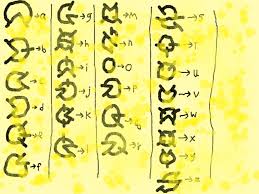 a
b
c
d
e
f
g
h
i
j
k
l
m
n
o
p
q
r
s
t
u
v
w
x
y
z